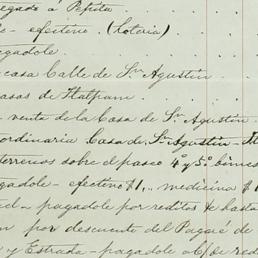 egado á Pepita
- efectivo (Lotería)
egadole
casa Calle de Sn. Agustin
casas de Tlalpam
- renta de la Casa de Sn. Agustin
ordinaria Casa de Sn. Agustin
terrenos sobre el paseo 4º y 5º bimes
gadole - efectivo $1,, medicina $1
ed - pagadole por reditos de hasta
n por descuento del Pagaré de
y Estrada - pagadole o/c/ de red